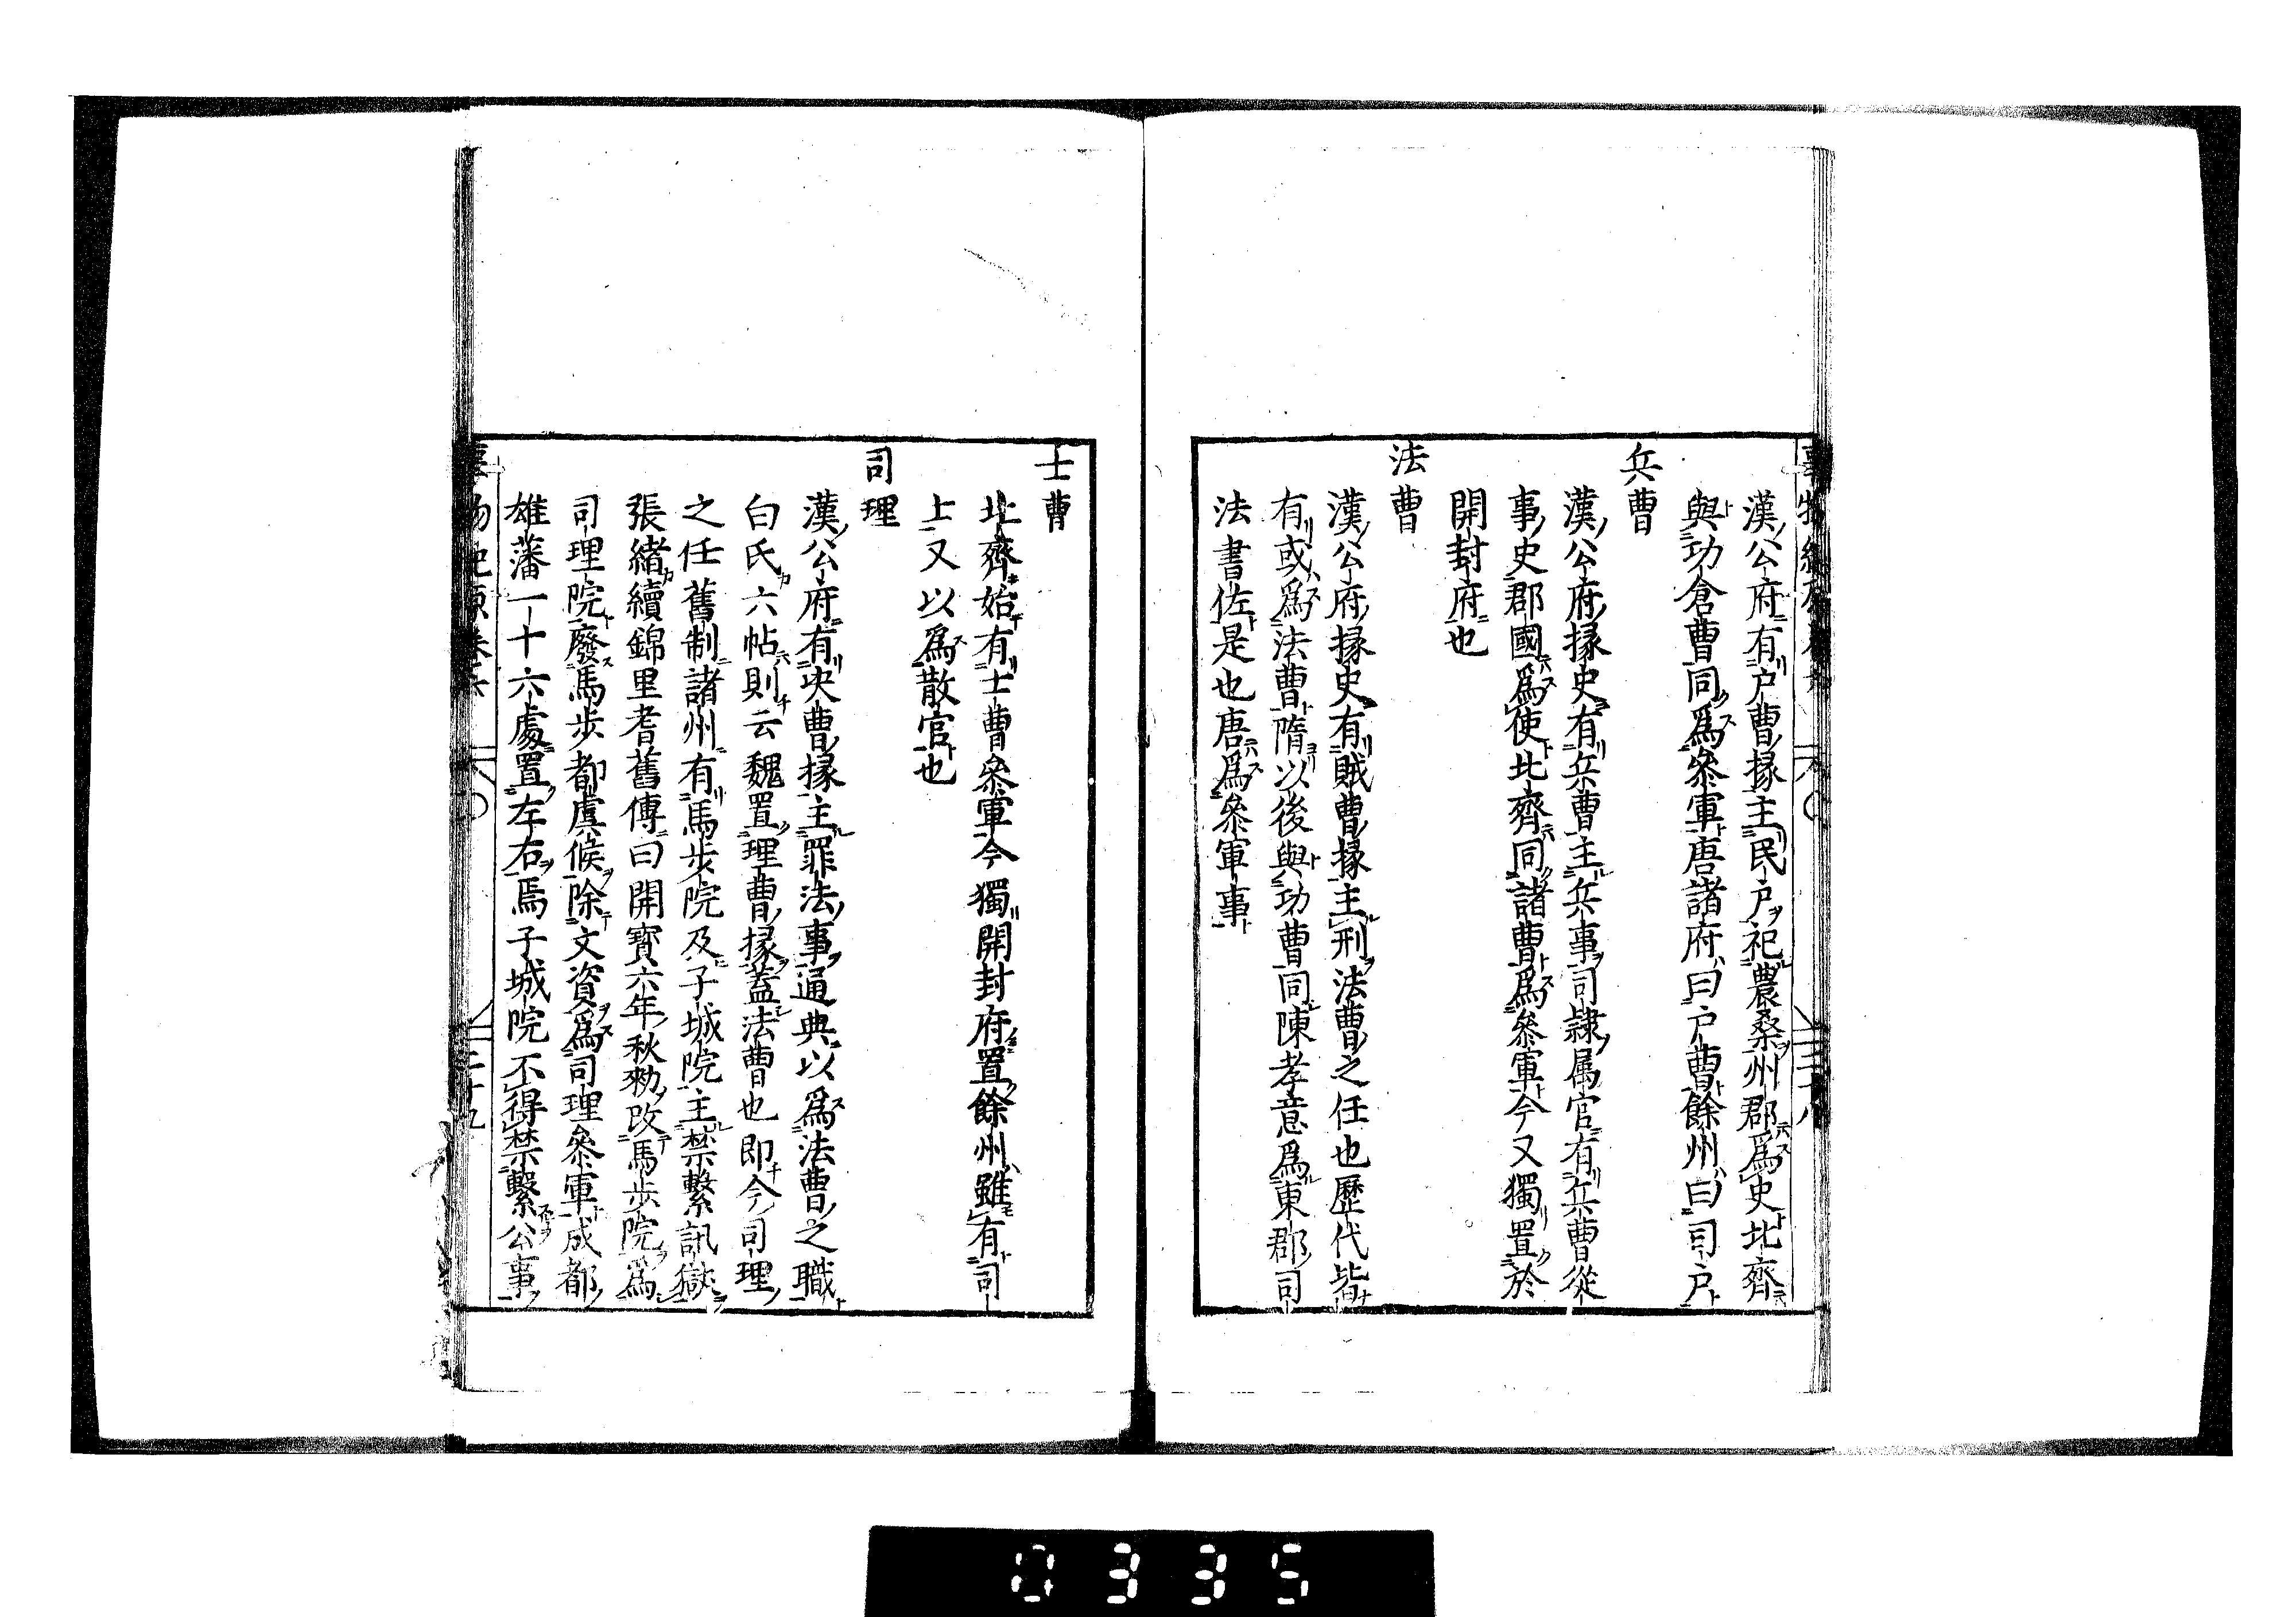 漢公府有戸曹掾主民戸祀農桑州郡爲史北齊
與功倉曹同爲叅軍唐諸府曰戸曹餘州曰司戸
兵曹
漢公府掾史有兵曹主兵事司隷属官有兵曹從
事史郡國爲使北齊同諸曹爲叅軍今又獨置於
開封府也
法曹
漢公府掾史有賊曹掾主刑法曹之任也歷代皆
有或爲法曹隋以後與功曹同陳孝意爲東郡司
法書佐是也唐爲叅軍事
士曹
北齊始有士曹叅軍今獨開封府置餘州雖有司
士又以爲散官也
司理
漢公府有决曹掾主罪法事通典以爲法曹之職
白氏六帖則云魏置理曹掾蓋法曹也即今司理
之任舊制諸州有馬步院及子城院主禁繫訊獄
張緒續錦里耆舊傳曰開寳六年秋勑改馬步院爲
司理院廢馬步都虞候除文資爲司理叅軍成都
雄藩一十六處置左右焉子城院不得禁繫公事
二十九
0335